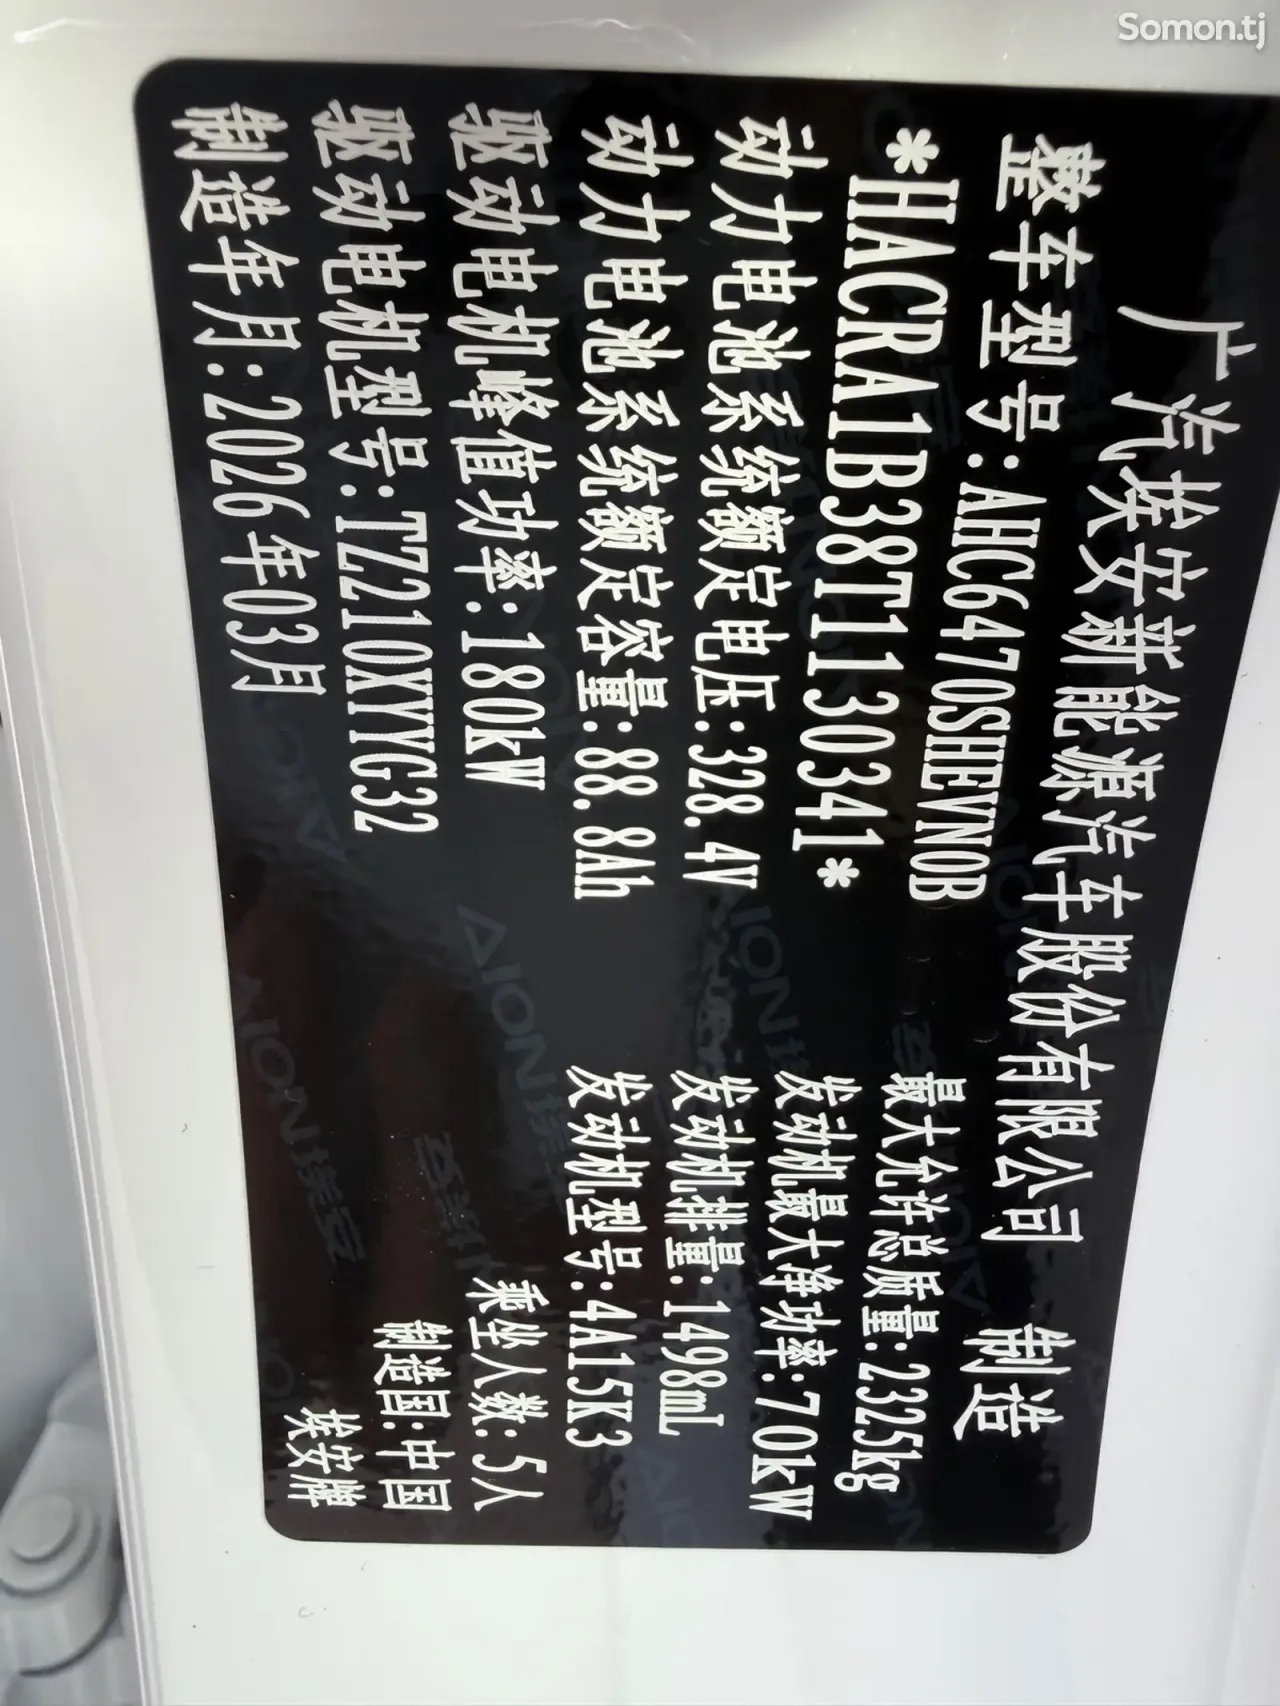 Somon.tj
广汽埃安新能源汽车股份有限公司 制造
整车型号:AHC6470SHEVN0B
*HACRA1B38T1130341*
最大允许总质量:2325kg
动力电池系统额定电压:328.4V
发动机最大净功率:70kW
动力电池系统额定容量:88.8Ah
发动机排量:1498mL
驱动电机峰值功率:180kW
发动机型号:4A15K3
驱动电机型号:TZ210XYYG32
乘坐人数:5人
制造年月:2026年03月
制造国:中国
埃安牌